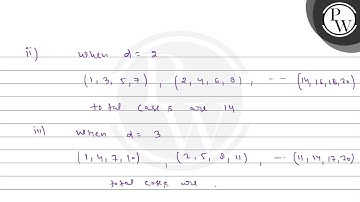 PW
ii) when d = 2
(1, 3, 5, 7), (2, 4, 6, 8), -- (14, 16, 18, 20)
total cases are 14
iii) when d = 3
(1, 4, 7, 10) (2, 5, 8, 11), -- (11, 14, 17, 20)
total cases are .